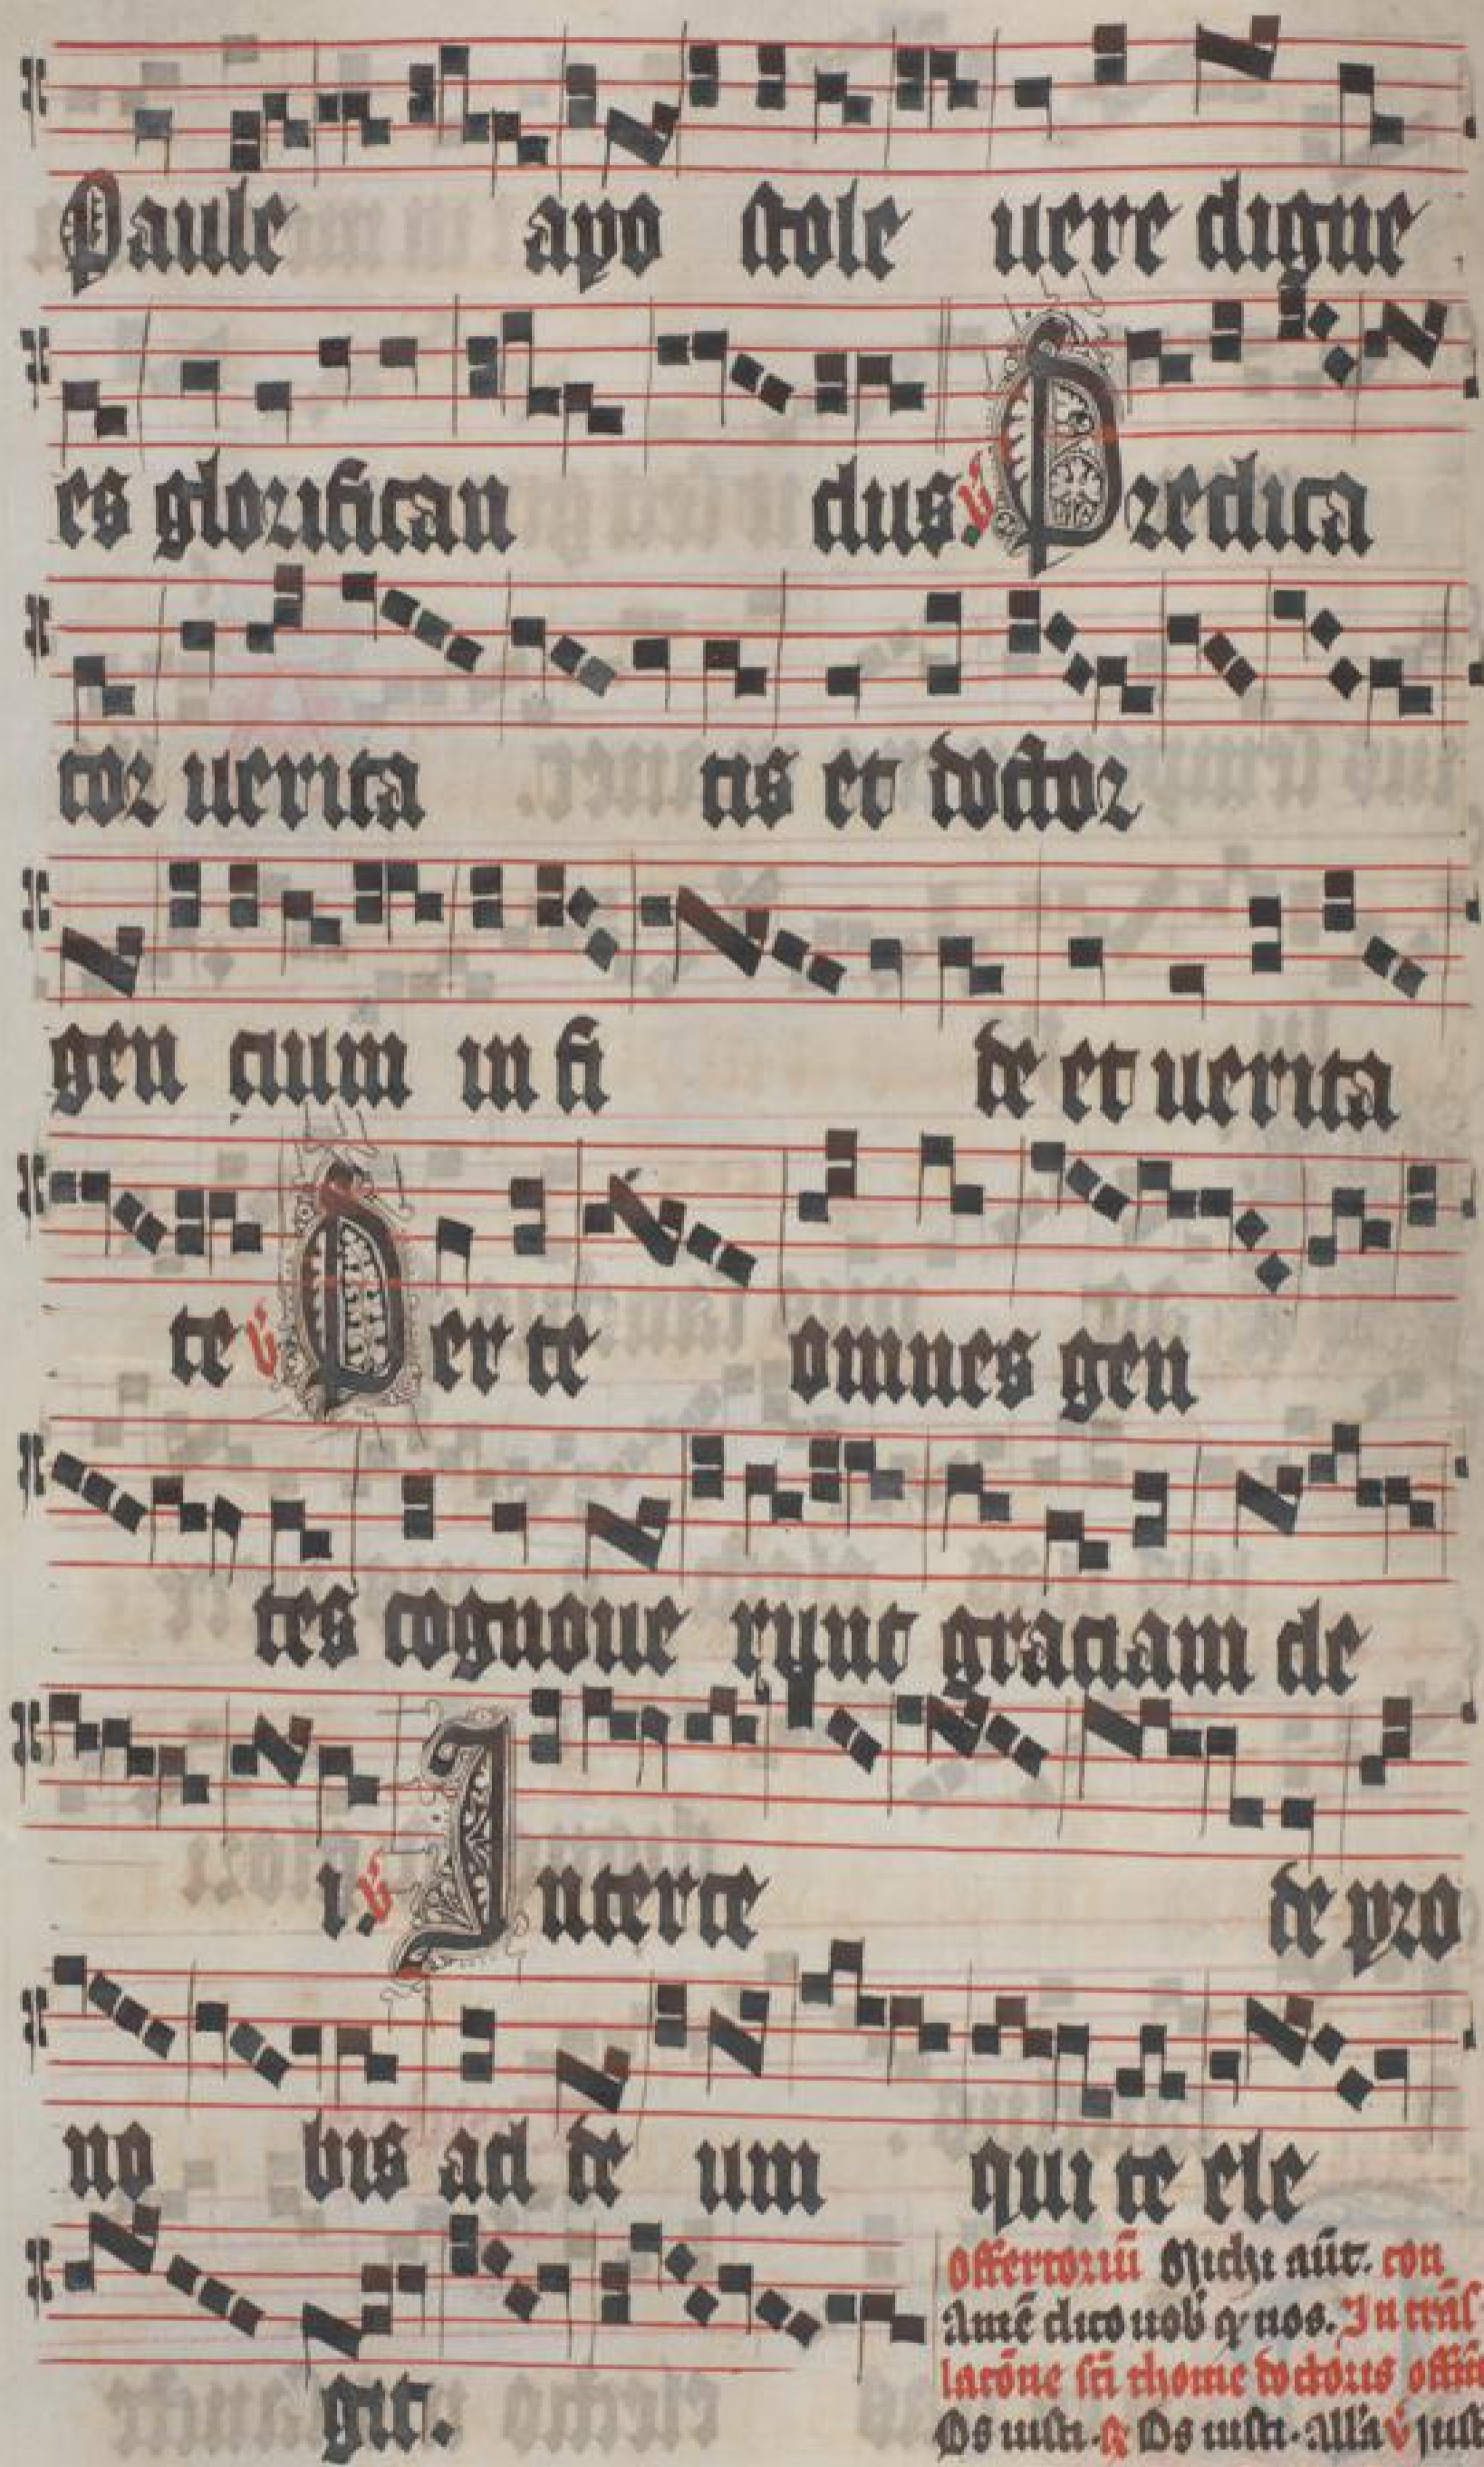 Paule apo stole uere digne
es glorifican dus. ℣ Predica
tor uerita tis et doctor
gen cium in fi de et uerita
te ℣ Per te omnes gen
tes cognoue runt graciam de
i. ℣ Interce de pro
no bis ad de um qui te ele
git.
offertoriū Michi aūt. con
Amē dico uob q uos. In trāſ
lacōne sci thome doctoris offici
Os iusti. ℟ Os iusti. alla ℣ iuſt